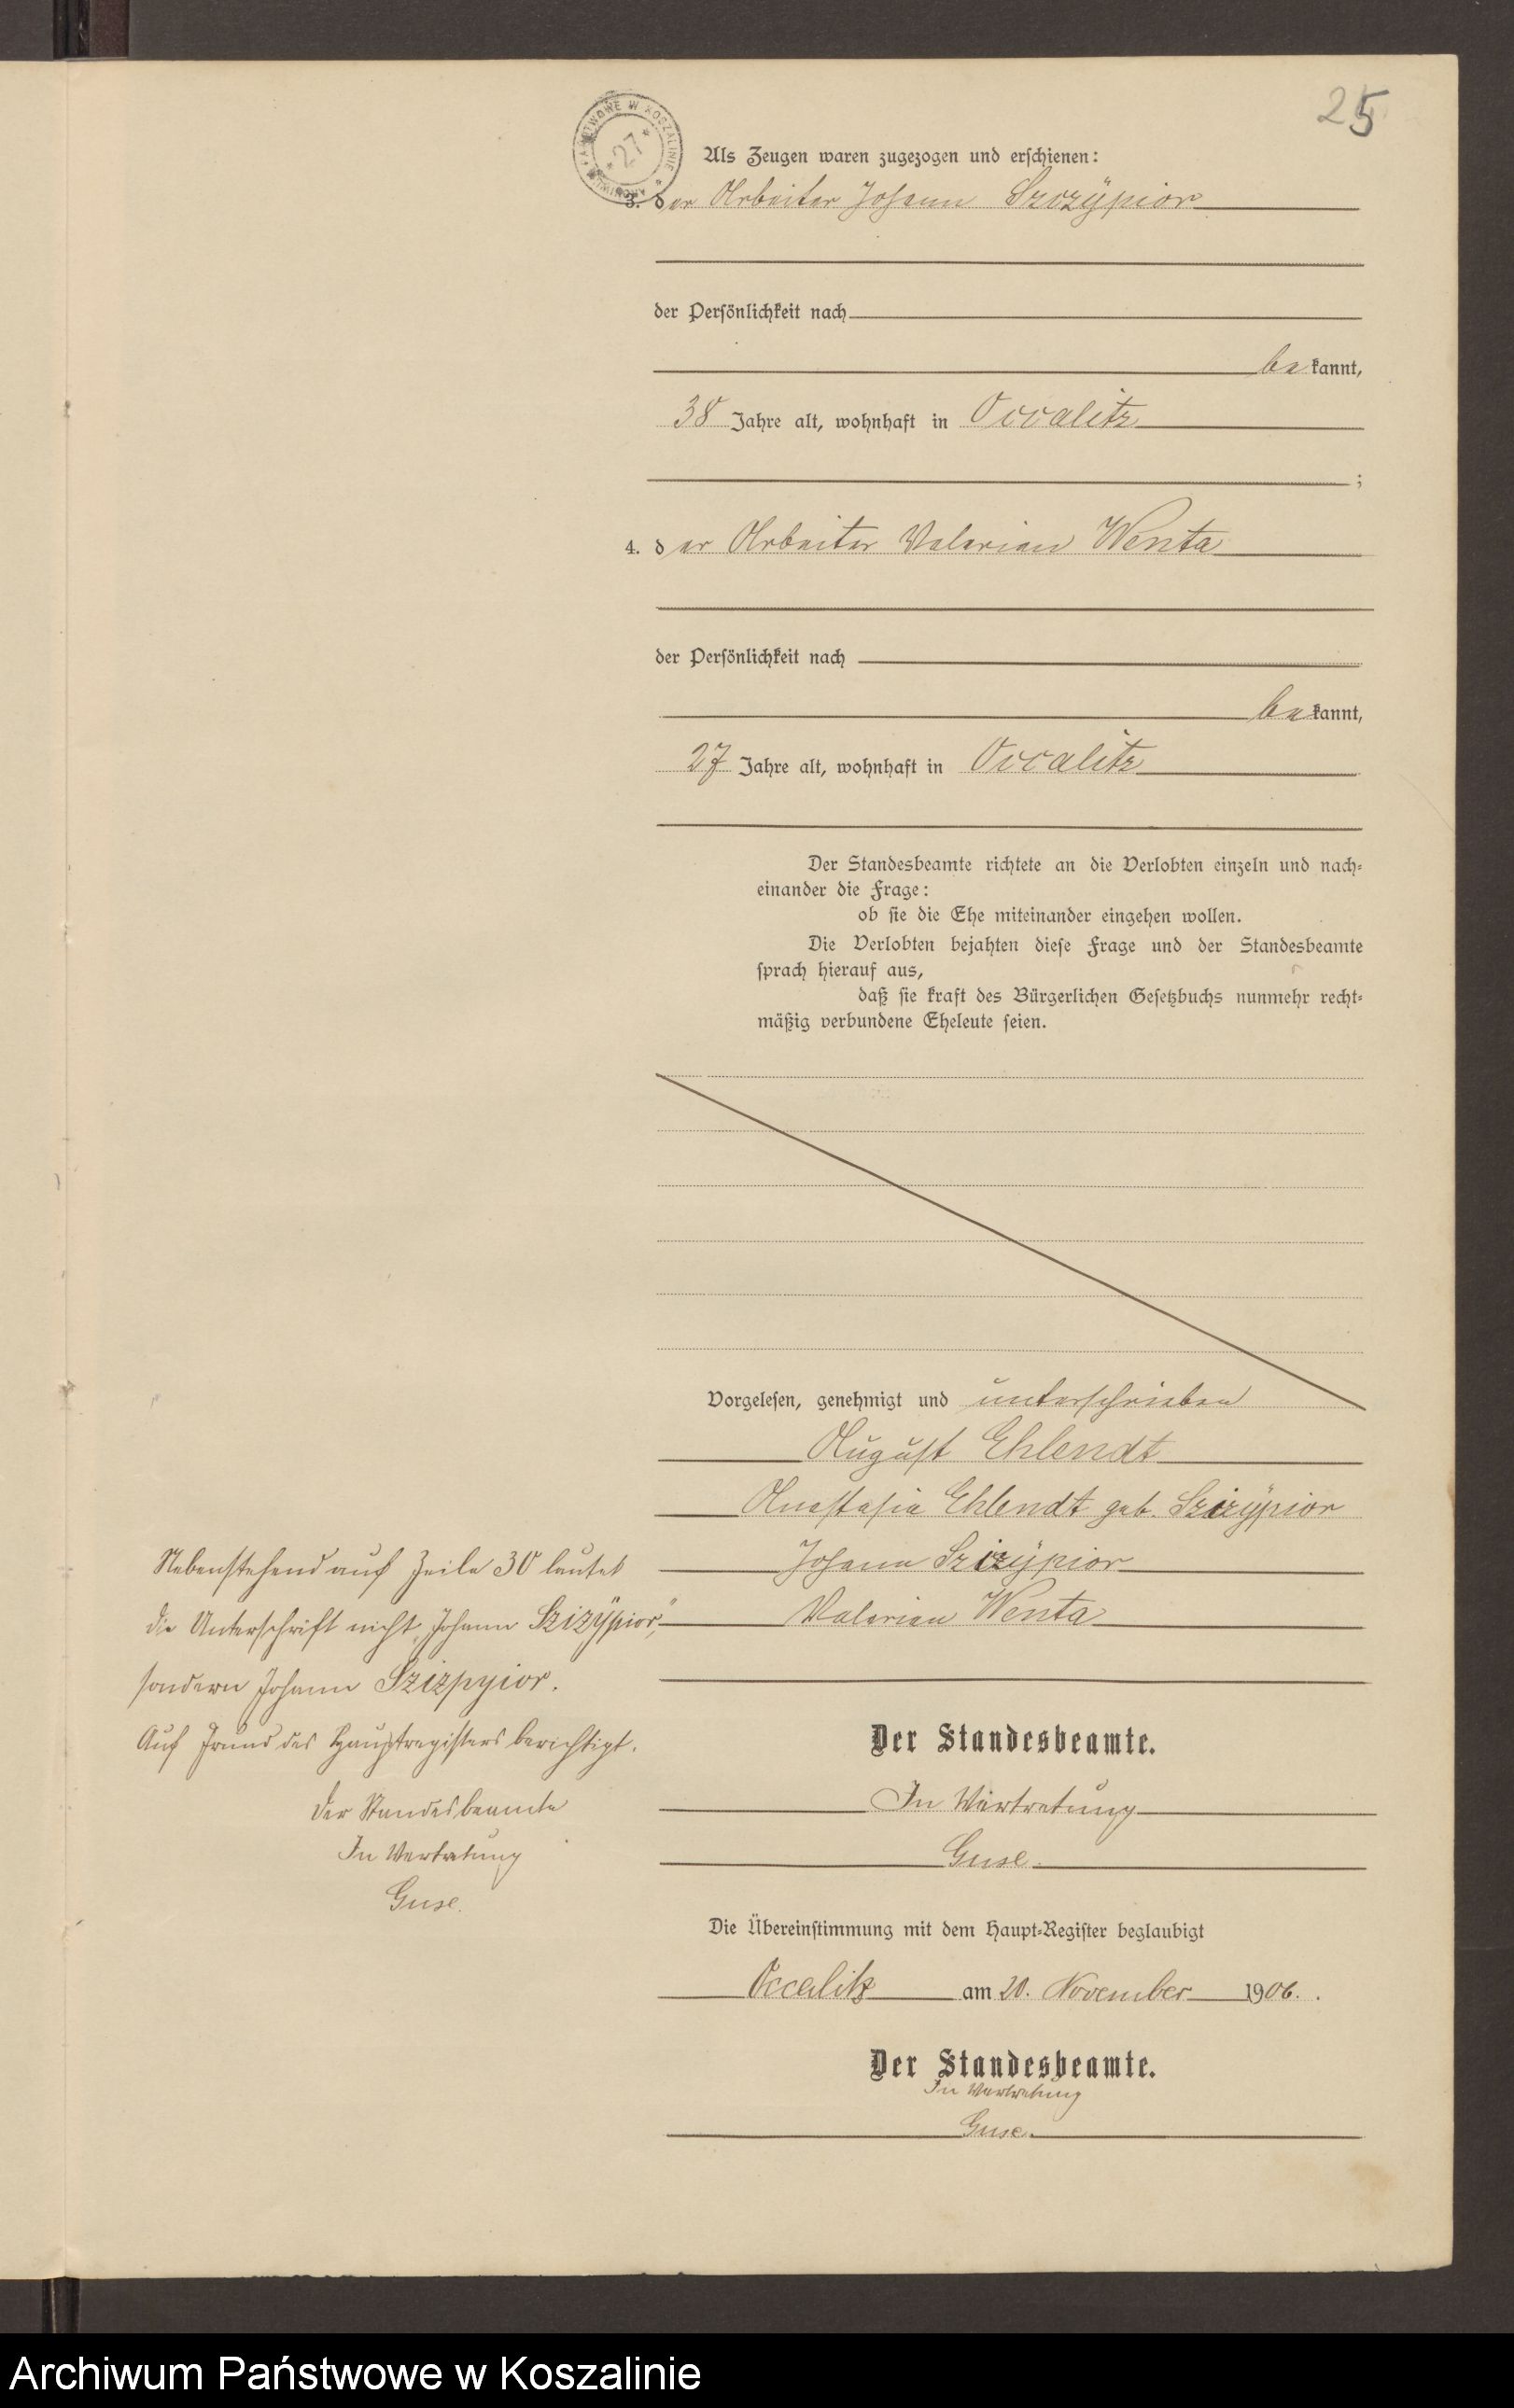 25
ARCHIWUM PAŃSTWOWE W KOSZALINIE * 27 *
Als Zeugen waren zugezogen und erschienen:
3. der Arbeiter Johann Szczÿpior
der Persönlichkeit nach
bekannt,
38 Jahre alt, wohnhaft in Occalitz
;
4. der Arbeiter Valerian Wenta
der Persönlichkeit nach
bekannt,
27 Jahre alt, wohnhaft in Occalitz
Der Standesbeamte richtete an die Verlobten einzeln und nach-
einander die Frage:
ob sie die Ehe miteinander eingehen wollen.
Die Verlobten bejahten diese Frage und der Standesbeamte
sprach hierauf aus,
daß sie kraft des Bürgerlichen Gesetzbuchs nunmehr recht-
mäßig verbundene Eheleute seien.
Vorgelesen, genehmigt und unterschrieben
August Ehlendt
Anastasia Ehlendt geb. Szizÿpior
Johann Szizÿpior
Valerian Wenta
Nebenstehend auf Zeile 30 lautet
die Unterschrift nicht „Johann Szizÿpior,"
sondern Johann Szizpyior.
Auf Grund des Hauptregisters berichtigt.
Der Standesbeamte
In Vertretung
Guse.
Der Standesbeamte.
In Vertretung
Guse.
Die Übereinstimmung mit dem Haupt-Register beglaubigt
Occalitz am 20. November 1906.
Der Standesbeamte.
In Vertretung
Guse.
Archiwum Państwowe w Koszalinie